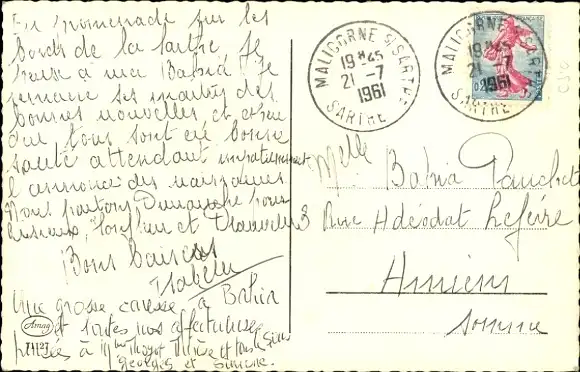 En promenade sur les
bords de la Sarthe je
pense à ma Bahia. Je
demande ses
bonnes nouvelles et
que tous sont en bonne
santé attendant impatiemment
l'annonce des naissances
Nous partons Dimanche pour
Lisieux, Honfleur et
Bons Baisers
Isabelle
Une grosse caresse à Bahia
et toutes nos affectueuses
pensées à
Georges et Simone.
MALICORNE S/SARTHE
19 H 45
21 -7
1961
SARTHE
MALICORNE S/SARTHE
19 H 45
21 -7
1961
SARTHE
Melle
Bahia
Rue Adéodat Lefèvre
3
Amiens
Somme